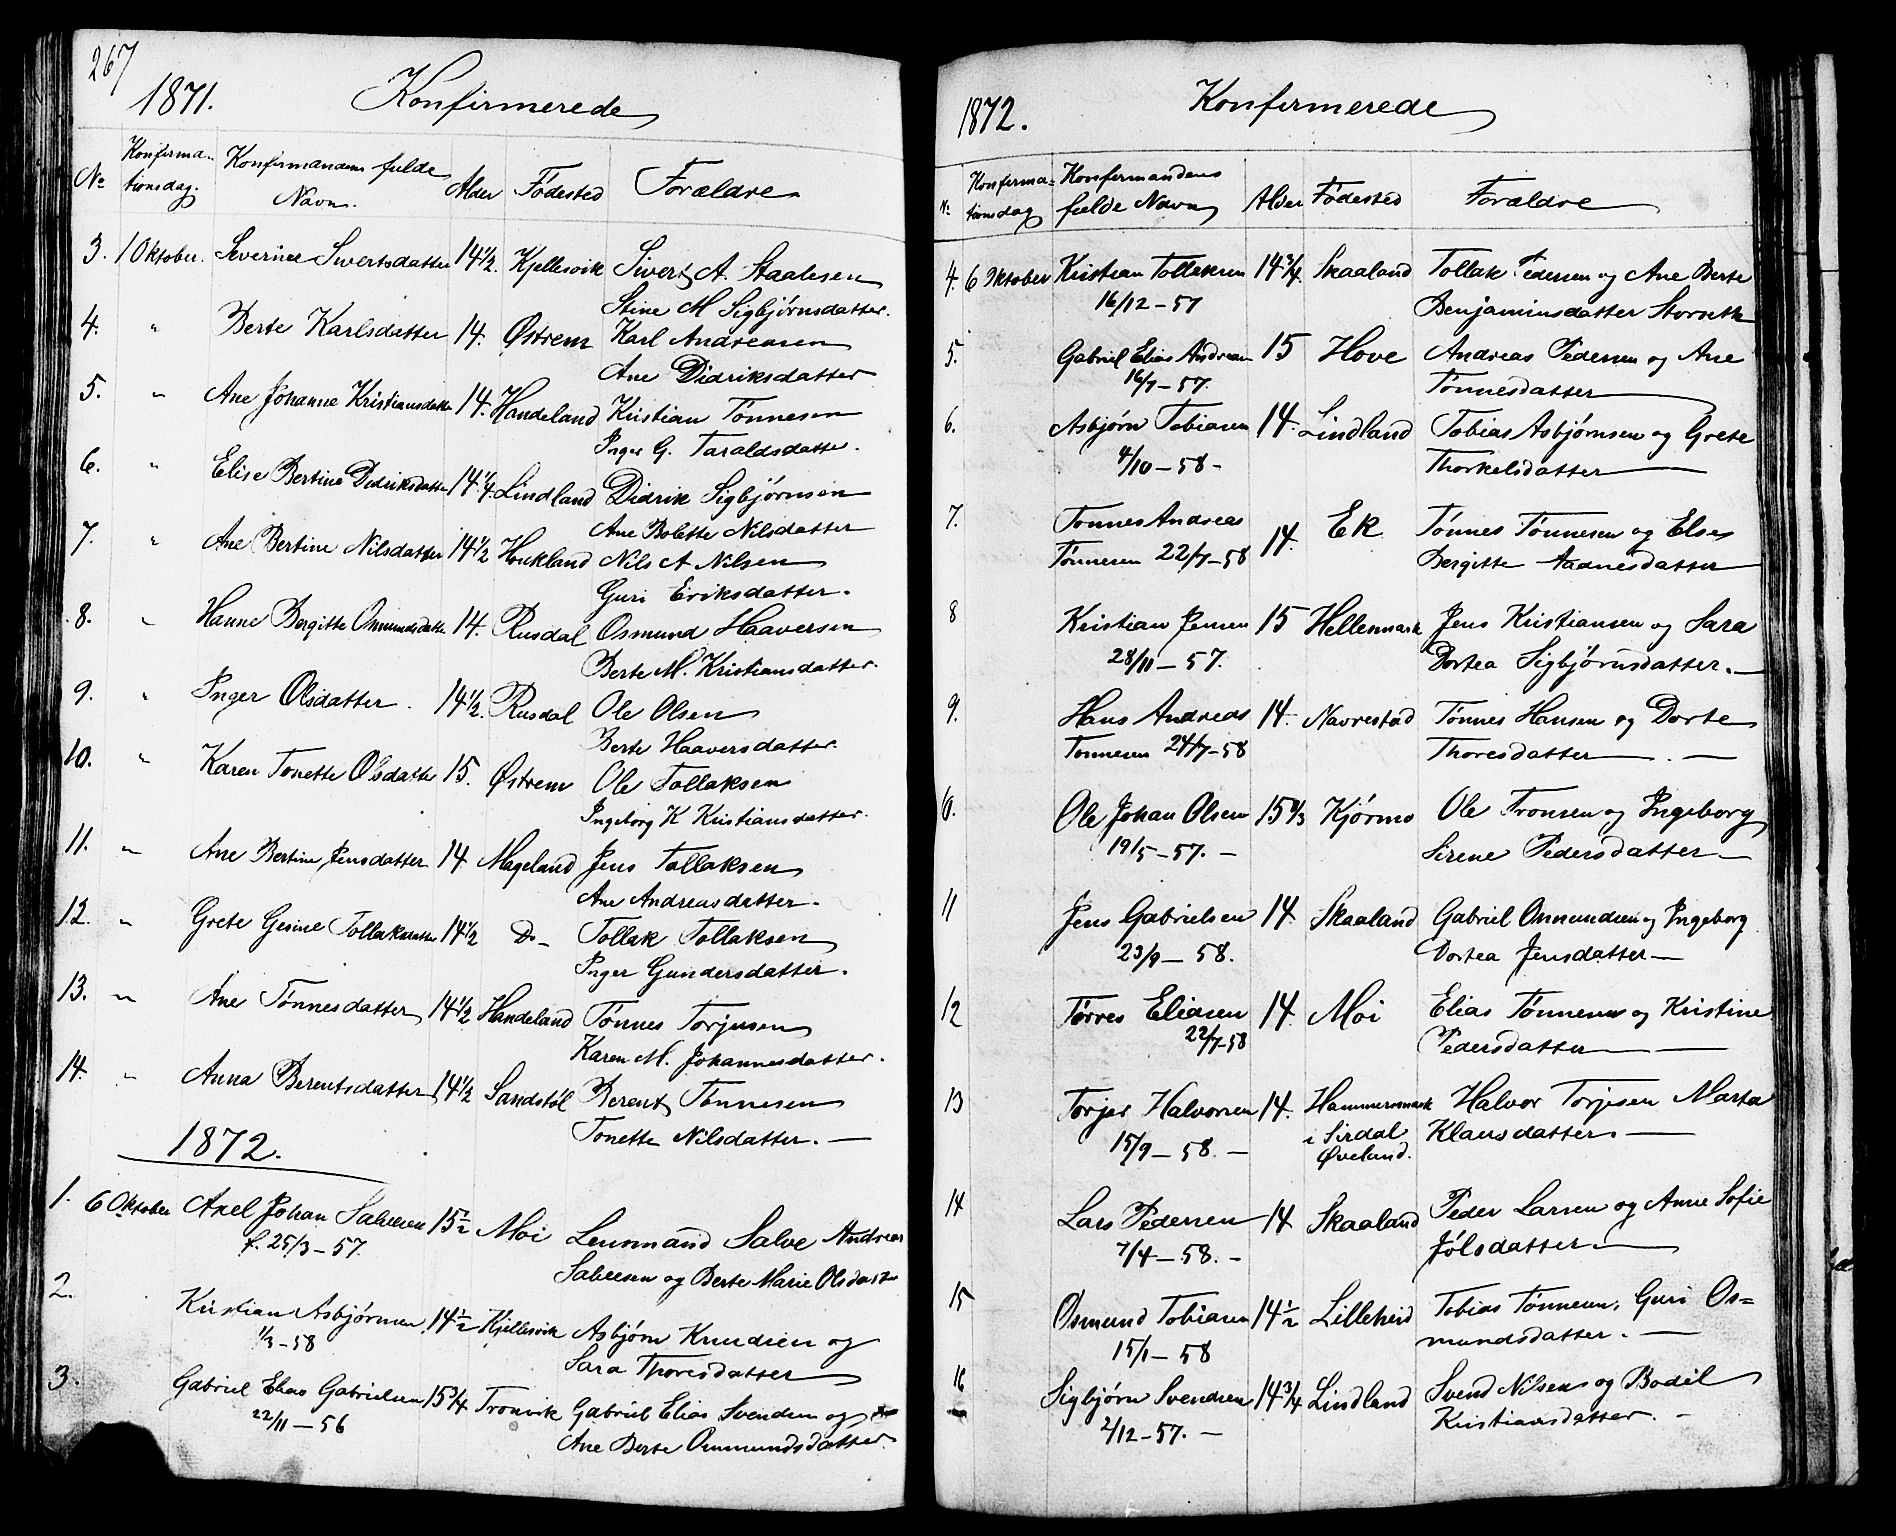 267
1871. Konfirmerede
No Konfirma- Konfirmandens fulde Alder Födested Forældre
tionsdag. Navn.
3. 1 Oktober. Severine Sivertsdatter 14½. Kjellesvik Sivert A. Staalesen
Stine M Sigbjørnsdatter.
4. " Berte Karlsdatter 14. Østrem Karl Andreasen
Ane Didriksdatter
5. " Ane Johanne Kristiansdatter 14. Handeland Kristian Tönnesen
Inger G. Taraldsdatter.
6. " Elise Bertine Didriksdatter 14¼. Lindland Didrik Sigbjörnsen
Ane Bolette Nilsdatter
7. " Ane Bertine Nilsdatter 14½ Houkland Nils A Nilsen
Guri Eriksdatter.
8. " Hanne Bergitte Osmundsdatter 14. Rusdal Osmund Haaversen
Berte M. Kristiansdatter.
9. " Inger Olsdatter. 14½. Rusdal Ole Olsen
Berte Haaversdatter.
10. " Karen Tonette Olsdatter 15. Østrem Ole Tollaksen
Ingeborg K Kristiansdatter.
11. " Ane Bertine Jensdatter 14 Mageland Jens Tollaksen
Ane Andreasdatter.
12. " Grete Gesine Tollaksdatter 14½ Do Tollak Tollaksen
Inger Gundersdatter.
13. " Ane Tönnesdatter 14½ Handeland Tönnes Torjusen
Karen M. Johannesdatter.
14. " Anna Berentsdatter 14½ Sandstöl Berent Tönnesen
Tonette Nilsdatter. —
1872.
1. 6 Oktober Axel Johan Salvesen 15½ Moi Lensmand Salve Andreas
f. 25/3-57. Salvesen og Berte Marie Olsdatter
2. Kristian Asbjörnsen 14½ Kjellesvik Asbjörn Knudsen og
1/3-58 Sara Thoresdatter
3. Gabriel Elias Gabrielsen 15¾ Tronvik Gabriel Elias Svendsen og
22/11-56 Ane Berte Ommundsdatter.
1872. Konfirmerede
No Konfirma- Konfirmandens Alder Födested Forældre
tionsdag fulde Navn
4. 6 Oktober Kristian Tollaksen 14¾. Skaaland Tollak Pedersen og Ane Berte
16/12-57 Benjaminsdatter
5. Gabriel Elias Andreasen 15 Hove Andreas Pedersen og Ane
16/7-57. Tönnesdatter
6. Asbjørn Tobiasen 14. Lindland Tobias Asbjørnsen og Grete
4/10-58- Thorkelsdatter
7. Tonnes Andreas 14. Ek Tönnes Tönnesen og Else
Tönnesen 22/7-58 Bergitte Aadnesdatter
8 Kristian Jensen 15 Hellesmark Jens Kristiansen og Sara
28/11-57. Dortea Sigbjörnsdatter. —
9. Hans Andreas 14 Navrestad Tönnes Hansen og Dorte
Tonnesen 24/7-58 Thoresdatter —
10. Ole Johan Olsen 15 Kjörmo Ole Tronsen og Ingeborg
19/5-57. — Sirene Pedersdatter —
11 Jens Gabrielsen 14. Skaaland Gabriel Ommundsen og Ingeborg
23/9-58. Dortea Jensdatter —
12 Tørres Eliasen 14. Moi Elias Tönnesen og Kristine
22/7-58 Pedersdatter —
13 Torjer Halvorsen 14. Hammersmark Halvor Torjesen Marta
15/9-58. — i Sirdal Klausdatter. —
Øveland.
14 Lars Pedersen 14 Skaaland Peder Larsen og Anne Sofie
7/4-58. - Jölsdatter. —
15 Osmund Tobiasen 14½ Lilleheid Tobias Tönnesen, Guri Os=
15/1-58 mundsdatter. —
16 Sigbjørn Svendsen 14¾ Lindland Svend Nilsen og Bodil
2/12-57. — Kristiansdatter. -